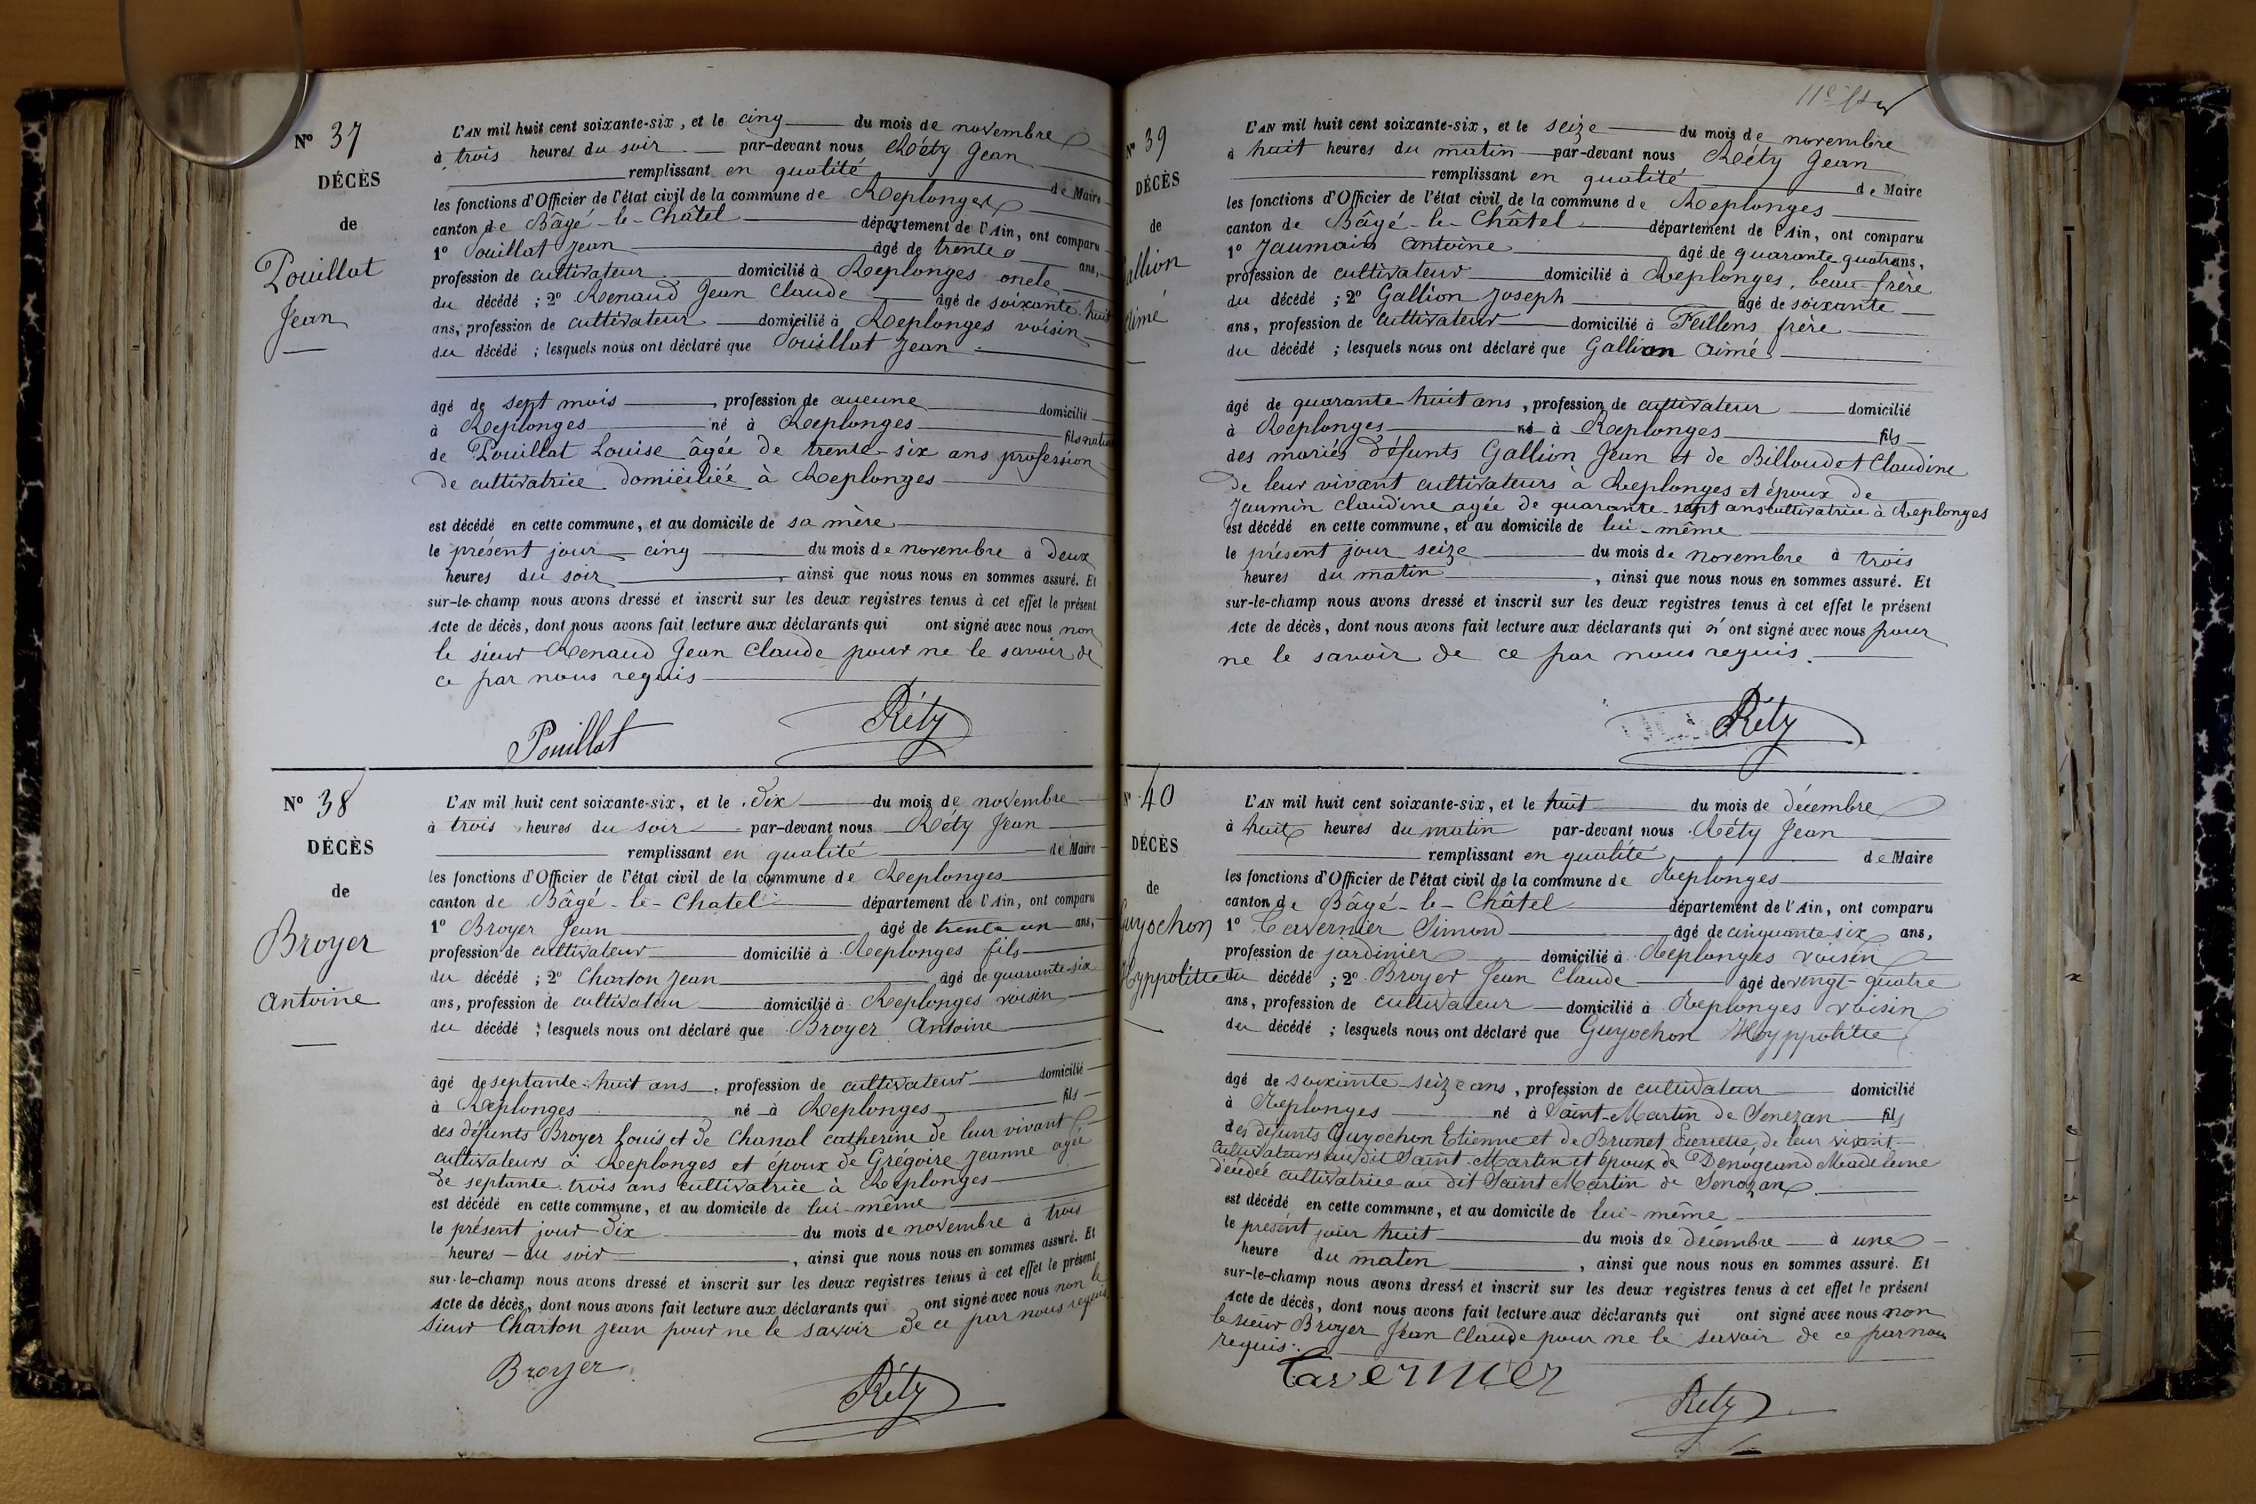 Nº 37
DÉCÈS
de
Pouillat
Jean
L'AN mil huit cent soixante-six, et le cinq du mois de novembre
à trois heures du soir par-devant nous Réty Jean
remplissant en qualité de Maire
les fonctions d'Officier de l'état civil de la commune de Replonges
canton de Bâgé-le-Châtel département de l'Ain, ont comparu
1º Pouillat Jean âgé de trente ans,
profession de cultivateur domicilié à Replonges oncle
du décédé ; 2º Renaud Jean Claude âgé de soixante-huit
ans, profession de cultivateur domicilié à Replonges voisin
du décédé ; lesquels nous ont déclaré que Pouillat Jean
âgé de sept mois, profession de aucune domicilié
à Replonges né à Replonges fils naturel
de Pouillat Louise âgée de trente-six ans profession
de cultivatrice domiciliée à Replonges
est décédé en cette commune, et au domicile de sa mère
le présent jour cinq du mois de novembre à deux
heures du soir, ainsi que nous nous en sommes assuré. Et
sur-le-champ nous avons dressé et inscrit sur les deux registres tenus à cet effet le présent
Acte de décès, dont nous avons fait lecture aux déclarants qui ont signé avec nous non
le sieur Renaud Jean Claude pour ne le savoir de
ce par nous requis
Pouillat Réty
Nº 38
DÉCÈS
de
Broyer
Antoine
L'AN mil huit cent soixante-six, et le dix du mois de novembre
à trois heures du soir par-devant nous Réty Jean
remplissant en qualité de Maire
les fonctions d'Officier de l'état civil de la commune de Replonges
canton de Bâgé-le-Chatel département de l'Ain, ont comparu
1º Broyer Jean âgé de trente un ans,
profession de cultivateur domicilié à Replonges fils
du décédé ; 2º Charton Jean âgé de quarante-six
ans, profession de cultivateur domicilié à Replonges voisin
du décédé ; lesquels nous ont déclaré que Broyer Antoine
âgé de septante-huit ans, profession de cultivateur domicilié
à Replonges né à Replonges fils
des défunts Broyer Louis et de Chanal catherine de leur vivant
cultivateurs à Replonges et époux de Grégoire Jeanne agée
de septante-trois ans cultivatrice à Replonges
est décédé en cette commune, et au domicile de lui-même
le présent jour dix du mois de novembre à trois
heures du soir, ainsi que nous nous en sommes assuré. Et
sur-le-champ nous avons dressé et inscrit sur les deux registres tenus à cet effet le présent
Acte de décès, dont nous avons fait lecture aux déclarants qui ont signé avec nous non le
sieur Charton Jean pour ne le savoir de ce par nous requis
Broyer Réty
Nº 39
DÉCÈS
de
allion
aimé
L'AN mil huit cent soixante-six, et le seize du mois de novembre
à huit heures du matin par-devant nous Réty Jean
remplissant en qualité de Maire
les fonctions d'Officier de l'état civil de la commune de Replonges
canton de Bâgé-le-Châtel département de l'Ain, ont comparu
1º Jaumain Antoine âgé de quarante-quatre ans,
profession de cultivateur domicilié à Replonges, beau-frère
du décédé ; 2º Gallion Joseph âgé de soixante
ans, profession de cultivateur domicilié à Feillens frère
du décédé ; lesquels nous ont déclaré que Gallion Aimé
âgé de quarante-huit ans, profession de cultivateur domicilié
à Replonges né à Replonges fils
des mariés défunts Gallion Jean et de Billoudet Claudine
de leur vivant cultivateurs à Replonges et époux de
Jaumin Claudine agée de quarante-sept ans cultivatrice à Replonges
est décédé en cette commune, et au domicile de lui-même
le présent jour seize du mois de novembre à trois
heures du matin, ainsi que nous nous en sommes assuré. Et
sur-le-champ nous avons dressé et inscrit sur les deux registres tenus à cet effet le présent
Acte de décès, dont nous avons fait lecture aux déclarants qui n'ont signé avec nous pour
ne le savoir de ce par nous requis.
Réty
Nº 40
DÉCÈS
de
Guyochon
Hyppolitte
L'AN mil huit cent soixante-six, et le huit du mois de décembre
à huit heures du matin par-devant nous Réty Jean
remplissant en qualité de Maire
les fonctions d'Officier de l'état civil de la commune de Replonges
canton de Bâgé-le-Châtel département de l'Ain, ont comparu
1º Tavernier Simon âgé de cinquante-six ans,
profession de jardinier domicilié à Replonges voisin
du décédé ; 2º Broyer Jean Claude âgé de vingt-quatre
ans, profession de cultivateur domicilié à Replonges voisin
du décédé ; lesquels nous ont déclaré que Guyochon Hyppolitte
âgé de soixante-seize ans, profession de cultivateur domicilié
à Replonges né à Saint-Martin de Senezan fils
des défunts Guyochon Etienne et de Brunet Pierrette, de leur vivant
cultivateurs au dit Saint-Martin et époux de Madeleine
décédée cultivatrice au dit Saint Martin de Senozan
est décédé en cette commune, et au domicile de lui-même
le présent jour huit du mois de décembre à une
heure du matin, ainsi que nous nous en sommes assuré. Et
sur-le-champ nous avons dressé et inscrit sur les deux registres tenus à cet effet le présent
Acte de décès, dont nous avons fait lecture aux déclarants qui ont signé avec nous non
le sieur Broyer Jean Claude pour ne le savoir de ce par nous
requis.
Tavernier Réty